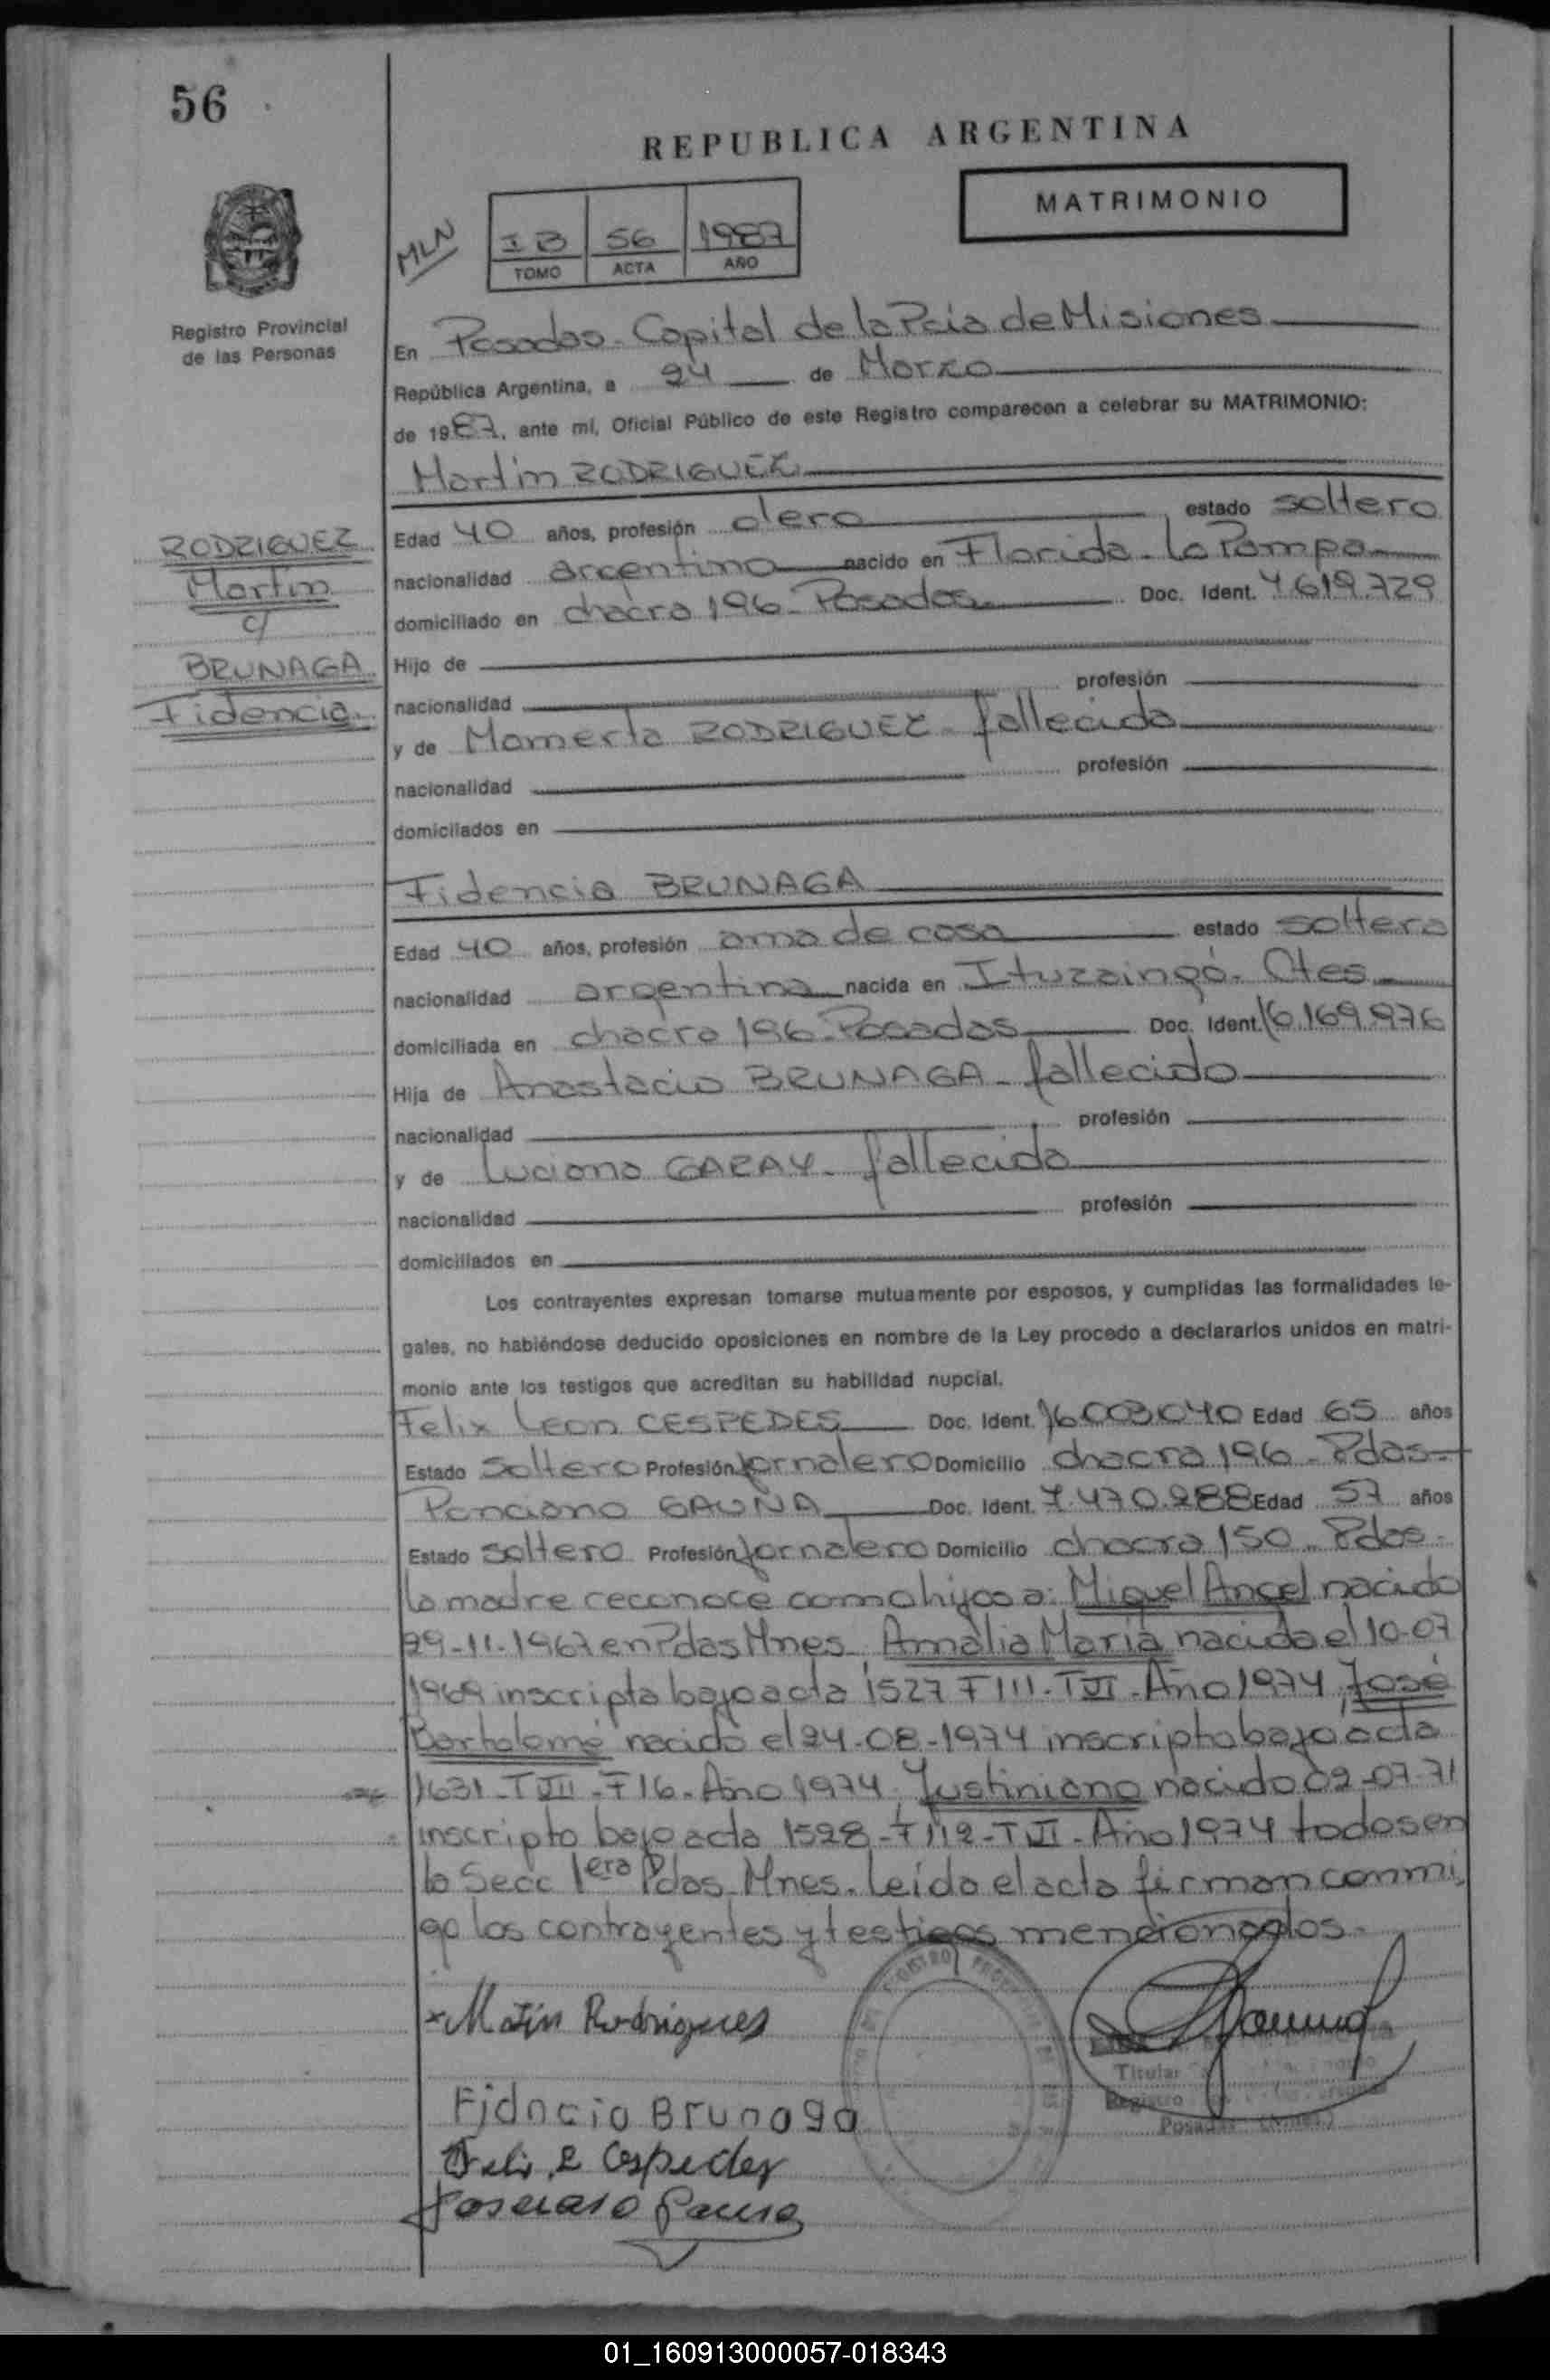 56
REPUBLICA ARGENTINA
MATRIMONIO
MLN
I B 56 1987
TOMO ACTA AÑO
Registro Provincial
de las Personas
En Posadas - Capital de la Pcia de Misiones
República Argentina, a 24 de Marzo
de 1987, ante mí, Oficial Público de este Registro comparecen a celebrar su MATRIMONIO:
Martin RODRIGUEZ
RODRIGUEZ
Martin
c/
BRUNAGA
Fidencia
Edad 40 años, profesión olero estado soltero
nacionalidad argentina nacido en Florida - La Pampa
domiciliado en chacra 196 - Posadas Doc. Ident. 7.619.729
Hijo de
nacionalidad profesión
y de Mamerta RODRIGUEZ - fallecida
nacionalidad profesión
domiciliados en
Fidencia BRUNAGA
Edad 40 años, profesión ama de casa estado soltera
nacionalidad argentina nacida en Ituzaingó - Ctes
domiciliada en chacra 196 - Posadas Doc. Ident. 16.169.976
Hija de Anastacio BRUNAGA - fallecido
nacionalidad profesión
y de Luciana GARAY - fallecida
nacionalidad profesión
domiciliados en
Los contrayentes expresan tomarse mutuamente por esposos, y cumplidas las formalidades le-
gales, no habiéndose deducido oposiciones en nombre de la Ley procedo a declararlos unidos en matri-
monio ante los testigos que acreditan su habilidad nupcial.
Felix Leon CESPEDES Doc. Ident. 16003040 Edad 65 años
Estado soltero Profesión jornalero Domicilio chacra 196 - Pdas -
Ponciano GAUNA Doc. Ident. 7.470.288 Edad 57 años
Estado soltero Profesión jornalero Domicilio chacra 150 - Pdas -
la madre reconoce como hijos a: Miguel Angel nacido
29-11-1967 en Pdas Mnes, Amalia María nacida el 10-07
1969 inscripta bajo acta 1527 F 111 - T VI - Año 1974, José
Bartolomé nacido el 24-08-1974 inscripto bajo acta
1631 - T VII - F 16 - Año 1974, Justiniano nacido 09-07-71
inscripto bajo acta 1528 - F 112 - T VI - Año 1974 todos en
la Secc 1era Pdas - Mnes. Leída el acta firman conmi
go los contrayentes y testigos mencionados.
Matin Rodrigues
Fidncia Brunaga
Felis L Cespedes
Titular
Registro
Posadas
01_160913000057-018343